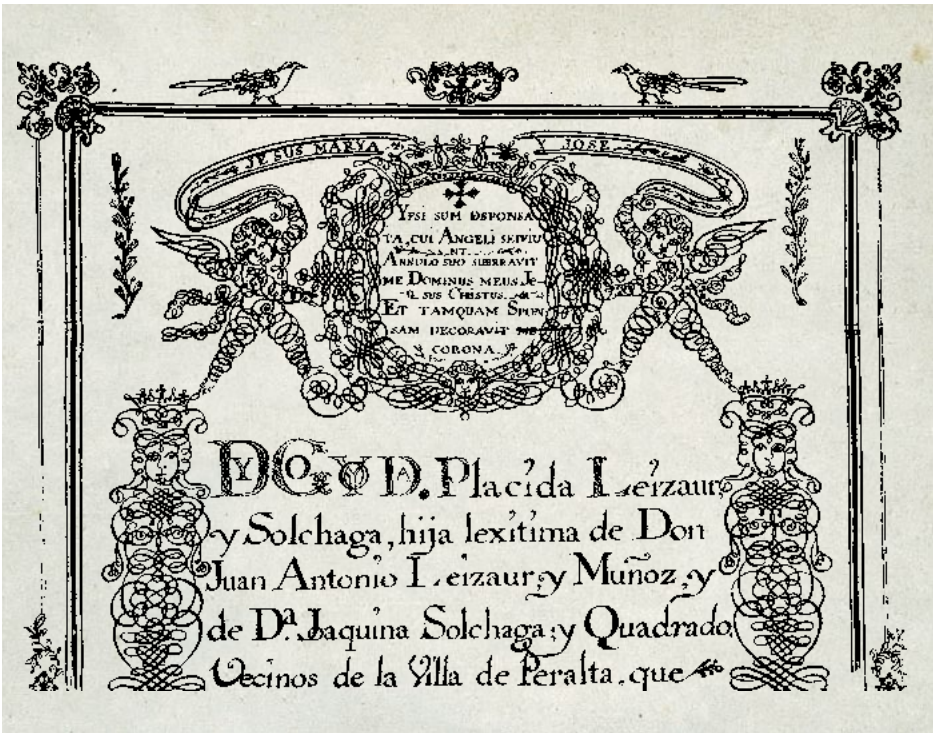 JESUS MARYA
Y JOSE
YPSI SUM DSPONSA
TA, CUI ANGELI SERVIU
NT.
ANNULO SUO SUBRRAVIT
ME DOMINUS MEUS JE-
SUS CHISTUS.
ET TAMQUAM SPON
SAM DECORAVIT ME
CORONA.
YO D. Placida Leizaur,
y Solchaga, hija lexitima de Don
Juan Antonio Leizaur, y Muñoz, y
de Dª. Joaquina Solchaga; y Quadrado,
Vecinos de la Villa de Peralta, que